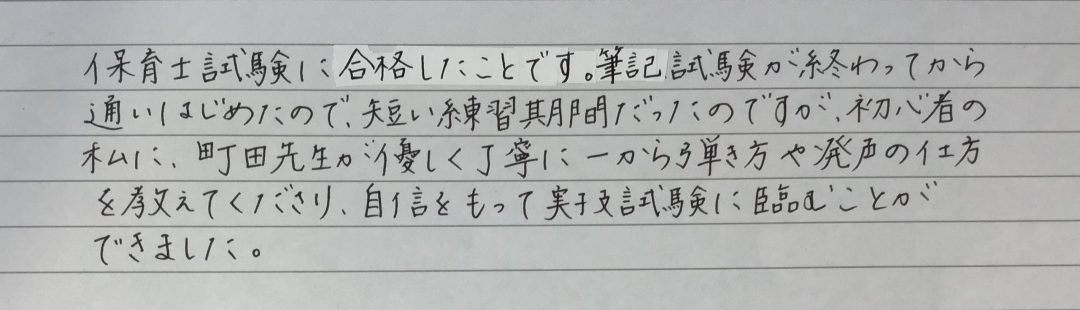 保育士試験に合格したことです。筆記試験が終わってから
通いはじめたので、短い練習期間だったのですが、初心者の
私に、町田先生が優しく丁寧に一から弾き方や発声の仕方
を教えてくださり、自信をもって実技試験に臨むことが
できました。